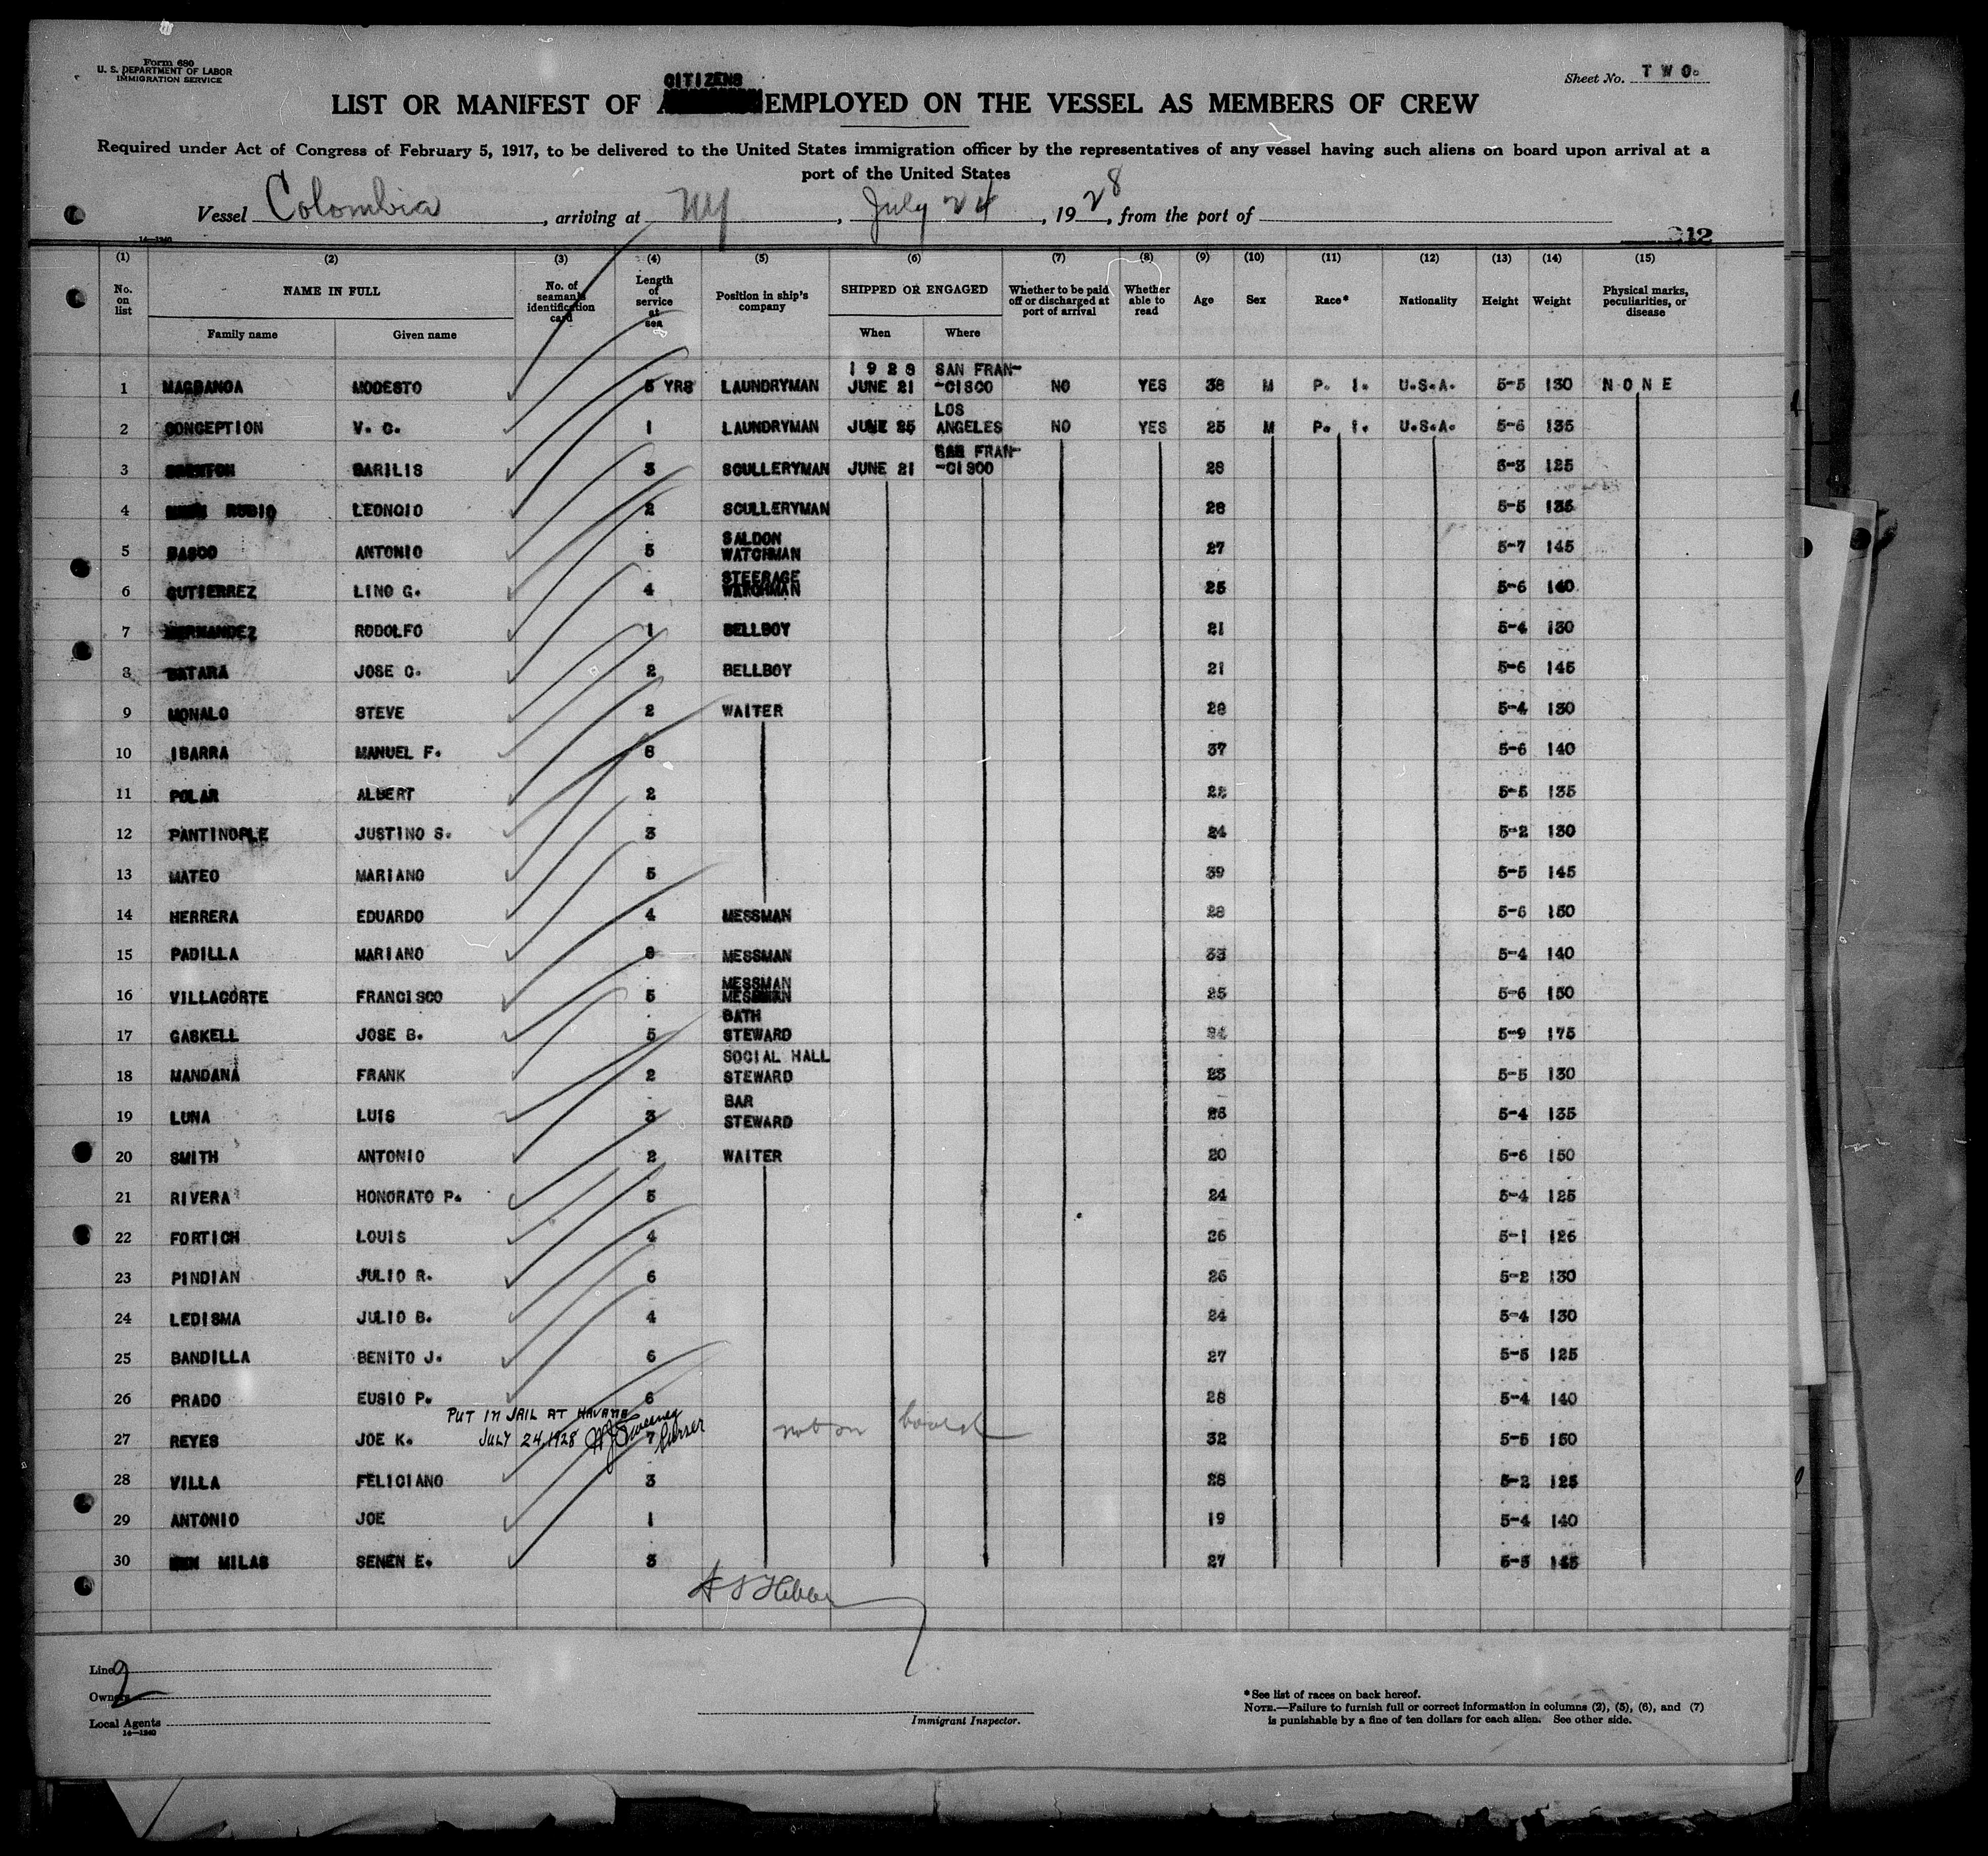 Form 680
U. S. DEPARTMENT OF LABOR
IMMIGRATION SERVICE
Sheet No. TWO.
CITIZENS
LIST OR MANIFEST OF EMPLOYED ON THE VESSEL AS MEMBERS OF CREW
Required under Act of Congress of February 5, 1917, to be delivered to the United States immigration officer by the representatives of any vessel having such aliens on board upon arrival at a
port of the United States
Vessel Colombia, arriving at NY, July 24, 1928, from the port of
14—1240
12
(1) (2) (3) (4) (5) (6) (7) (8) (9) (10) (11) (12) (13) (14) (15)
No. on list NAME IN FULL Family name Given name No. of seaman's identification card Length of service at sea Position in ship's company SHIPPED OR ENGAGED When Where Whether to be paid off or discharged at port of arrival Whether able to read Age Sex Race* Nationality Height Weight Physical marks, peculiarities, or disease
1928 SAN FRAN-
1 MAGBANOA MODESTO 5 YRS LAUNDRYMAN JUNE 21 -CISCO NO YES 38 M P. I. U.S.A. 5-5 130 NONE
LOS
2 CONCEPTION V. C. 1 LAUNDRYMAN JUNE 25 ANGELES NO YES 25 M P. I. U.S.A. 5-6 135
SAN FRAN-
3 BARILIS 3 SCULLERYMAN JUNE 21 -CISCO 28 5-3 125
4 RUBIO LEONCIO 2 SCULLERYMAN 28 5-5 135
SALOON
5 BASCO ANTONIO 5 WATCHMAN 27 5-7 145
STEERAGE
6 GUTIERREZ LINO G. 4 WATCHMAN 25 5-6 140
7 HERNANDEZ RODOLFO 1 BELLBOY 21 5-4 130
8 BATARA JOSE C. 2 BELLBOY 21 5-6 145
9 MONALO STEVE 2 WAITER 28 5-4 130
10 IBARRA MANUEL F. 8 37 5-6 140
11 POLAR ALBERT 2 22 5-5 135
12 PANTINOPLE JUSTINO S. 3 24 5-2 130
13 MATEO MARIANO 5 39 5-5 145
14 HERRERA EDUARDO 4 MESSMAN 28 5-6 150
15 PADILLA MARIANO MESSMAN 33 5-4 140
MESSMAN
16 VILLACORTE FRANCISCO 5 25 5-6 150
BATH
17 GASKELL JOSE B. 5 STEWARD 5-9 175
SOCIAL HALL
18 MANDANA FRANK 2 STEWARD 23 5-5 130
BAR
19 LUNA LUIS 3 STEWARD 5-4 135
20 SMITH ANTONIO 2 WAITER 20 5-6 150
21 RIVERA HONORATO P. 5 24 5-4 125
22 FORTICH LOUIS 4 26 5-1 126
23 PINDIAN JULIO R. 6 26 5-2 130
24 LEDISMA JULIO B. 4 24 5-4 130
25 BANDILLA BENITO J. 6 27 5-5 125
26 PRADO EUSIO P. 6 28 5-4 140
PUT IN JAIL AT HAVANA
27 REYES JOE K. JULY 24, 1928 Sweeney Purser 7 not on board 32 5-5 150
28 VILLA FELICIANO 3 28 5-2 125
29 ANTONIO JOE 1 19 5-4 140
30 MILAS SENEN E. 3 27 5-5 145
Line 2
Owners
Local Agents
14—1240
Immigrant Inspector.
*See list of races on back hereof.
NOTE.—Failure to furnish full or correct information in columns (2), (5), (6), and (7)
is punishable by a fine of ten dollars for each alien. See other side.